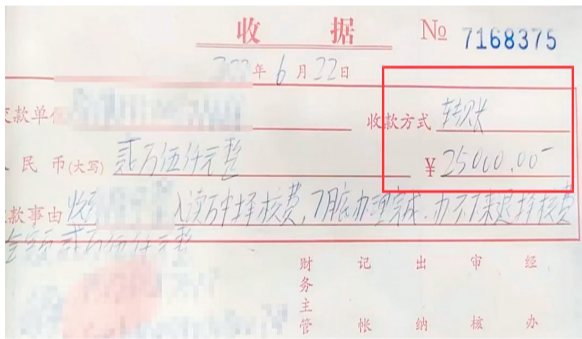 收据
№ 7168375
年6月22日
款单 收款方式 转账
人民币(大写) 贰万伍仟元整 ¥25000.00
款事由 收 入读 中择校费，7月底办理完成，办不下来退择校费
全额贰万伍仟元整
财务主管 记帐 出纳 审核 经办